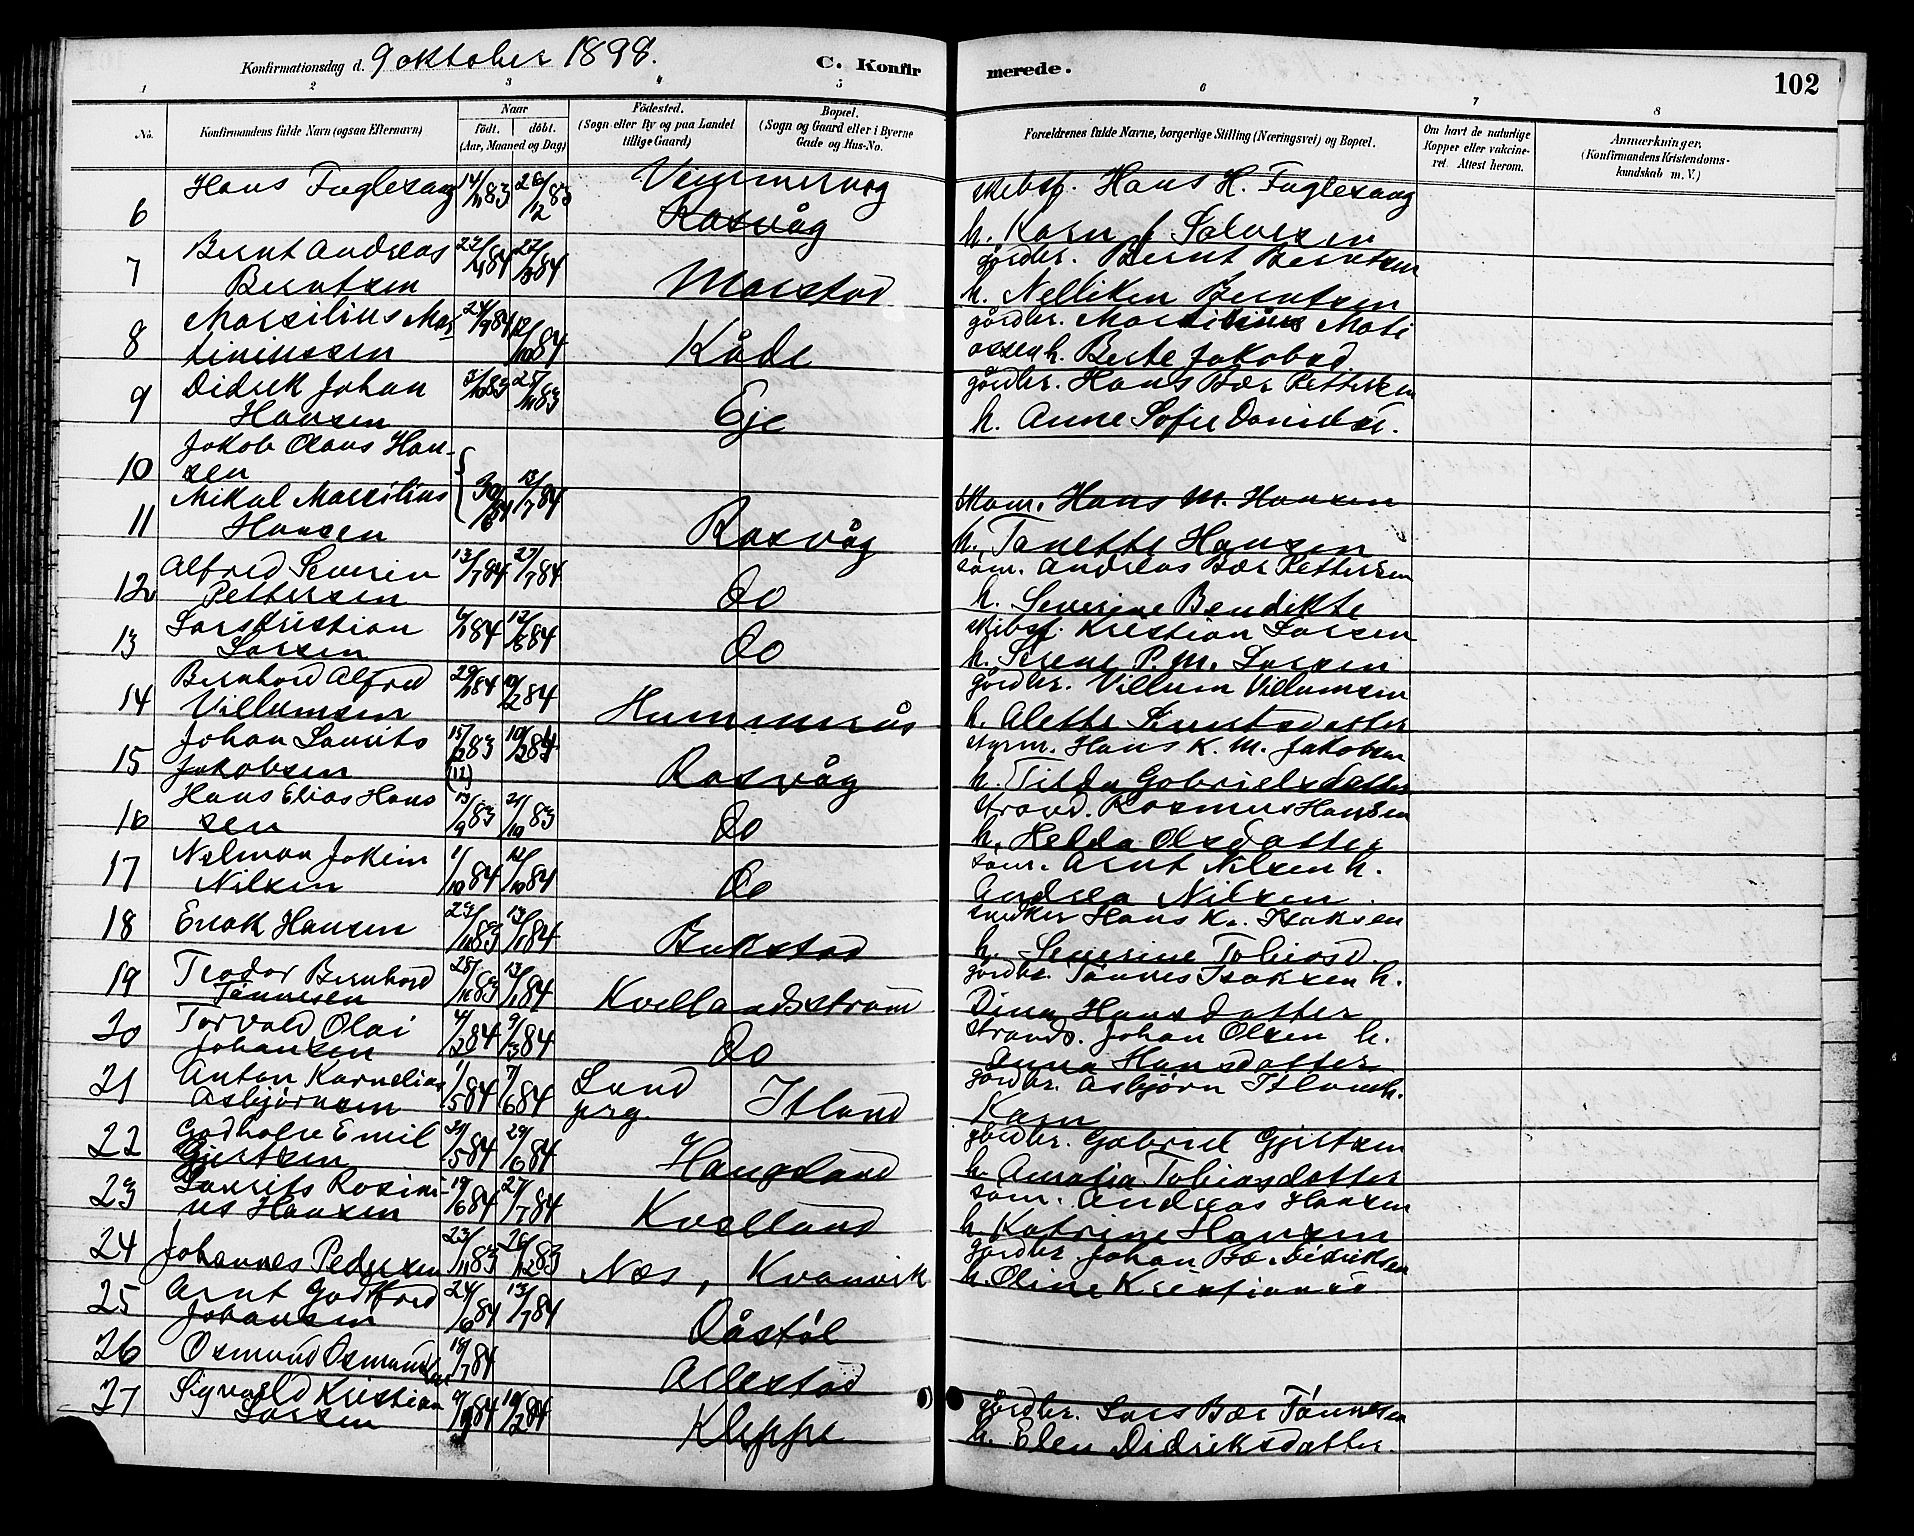 Konfirmationsdag d. 9 oktober 1898. C. Konfirmerede. 102
1 2 3 4 5 6 7 8
No. Konfirmandens fulde Navn (ogsaa Efternavn) Naar födt. döbt. (Aar, Maaned og Dag) Födested. (Sogn eller By og paa Landet tillige Gaard) Bopæl. (Sogn og Gaard eller i Byerne Gade og Hus-No. Forældrenes fulde Navne, borgerlige Stilling (Næringsvei) og Bopæl. Om havt de naturlige Kopper eller vakcineret. Attest herom. Anmærkninger. (Konfirmandens Kristendomskundskab m. V.)
6 Hans Fuglevaag 83 26/12 83 skibsf. Hans H. Fuglevaag
Rasvåg h. Karn
7 Bernt Andreas Berntsen 84 84 Marstad gårdbr. Bernt Berntsen
h. Nelliken Berntsen
8 Marsilius Martiniussen 24/9 84 12/10 84 Kåde gårdbr.
h. Berte Jakobsd
9 Didrik Johan Hansen 83 83 Eje gårdbr. Hans Bær Pettersen
h. Anne Sofie Danielsd.
10 Jakob Olaus Hansen
11 Mikal Marsilius Hansen 84 13/7 84 Rasvåg Hans M. Hansen
h. Tanette Hansen
12 Alfred Severin Pettersen 13/7 84 27/7 84 Do søm. Andreas Bær Pettersen
h. Severine Bendikte
13 Lars Kristian Larsen 84 84 Do skibsf. Kristian Larsen
h. Serene P. M. Larsen
14 Bernhard Alfred Villumsen 29/1 84 10/2 84 Hummerås gårdbr. Villum Villumsen
h. Alette
15 Johan Laurits Jakobsen 15/12 83 (12) 10/2 84 Rasvåg styrm. Hans K. M. Jakobsen
h. Tilda Gabrielsdatter
16 Hans Elias Hansen 13/9 83 21/10 83 Do strand. Rasmus Hansen
h. Helda Olsdatter
17 Nelman Jokim Nilsen 1/10 84 12/10 84 Do søm. Arnt Nilsen h.
Andrea Nilsen
18 Enok Hansen 83 13/1 84 Bukstad snedker Hans K. Isaksen
h. Severine Tobiasd.
19 Teodor Bernhard Tønnesen 83 13/1 84 Kvellandsstrøm gårdbr. Tønnes Isaksen h.
Dina Hansdatter
20 Torvald Olai Johansen 4/2 84 9/3 84 Do strands. Johan Olsen h.
Anna Hansdatter
21 Anton Kornelius Asbjørnsen 1/5 84 7/6 84 Lund prg. Itland gårdbr. Asbjørn Itland h.
Karn
22 Emil Gjertsen 21/5 84 29/6 84 Haugland gårdbr. Gabriel Gjertsen
h. Amalia Tobiasdatter
23 Laurits Rasinius Hansen 19/6 84 27/7 84 Kvelland søm. Andreas Hansen
h. Katrine Hansen
24 Johannes Pedersen 23/11 83 26/12 83 Næs, Kvanvik gårdbr. Johan Bær Didriksen
h. Oline Kristiansd.
25 Arnt Godtfred Johansen 24/6 84 13/7 84 Dåstøl
26 Osmund Osmundsen 18/7 84 Allestad
27 Sigvald Kristian Larsen 84 84 Kleppe gårdbr. Lars Bær Tønnesen
h. Elen Didriksdatter.